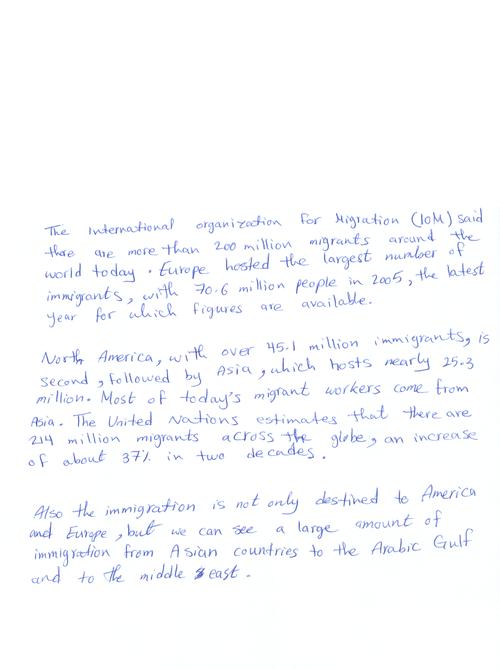 The International organization for Migration (IOM) said
there are more than 200 million migrants around the
world today. Europe hosted the largest number of
immigrants, with 70.6 million people in 2005, the latest
year for which figures are available.
North America, with over 45.1 million immigrants, is
second, followed by Asia, which hosts nearly 25.3
million. Most of today's migrant workers come from
Asia. The United Nations estimates that there are
214 million migrants across the globe, an increase
of about 37% in two decades.
Also the immigration is not only destined to America
and Europe, but we can see a large amount of
immigration from Asian countries to the Arabic Gulf
and to the middle east.